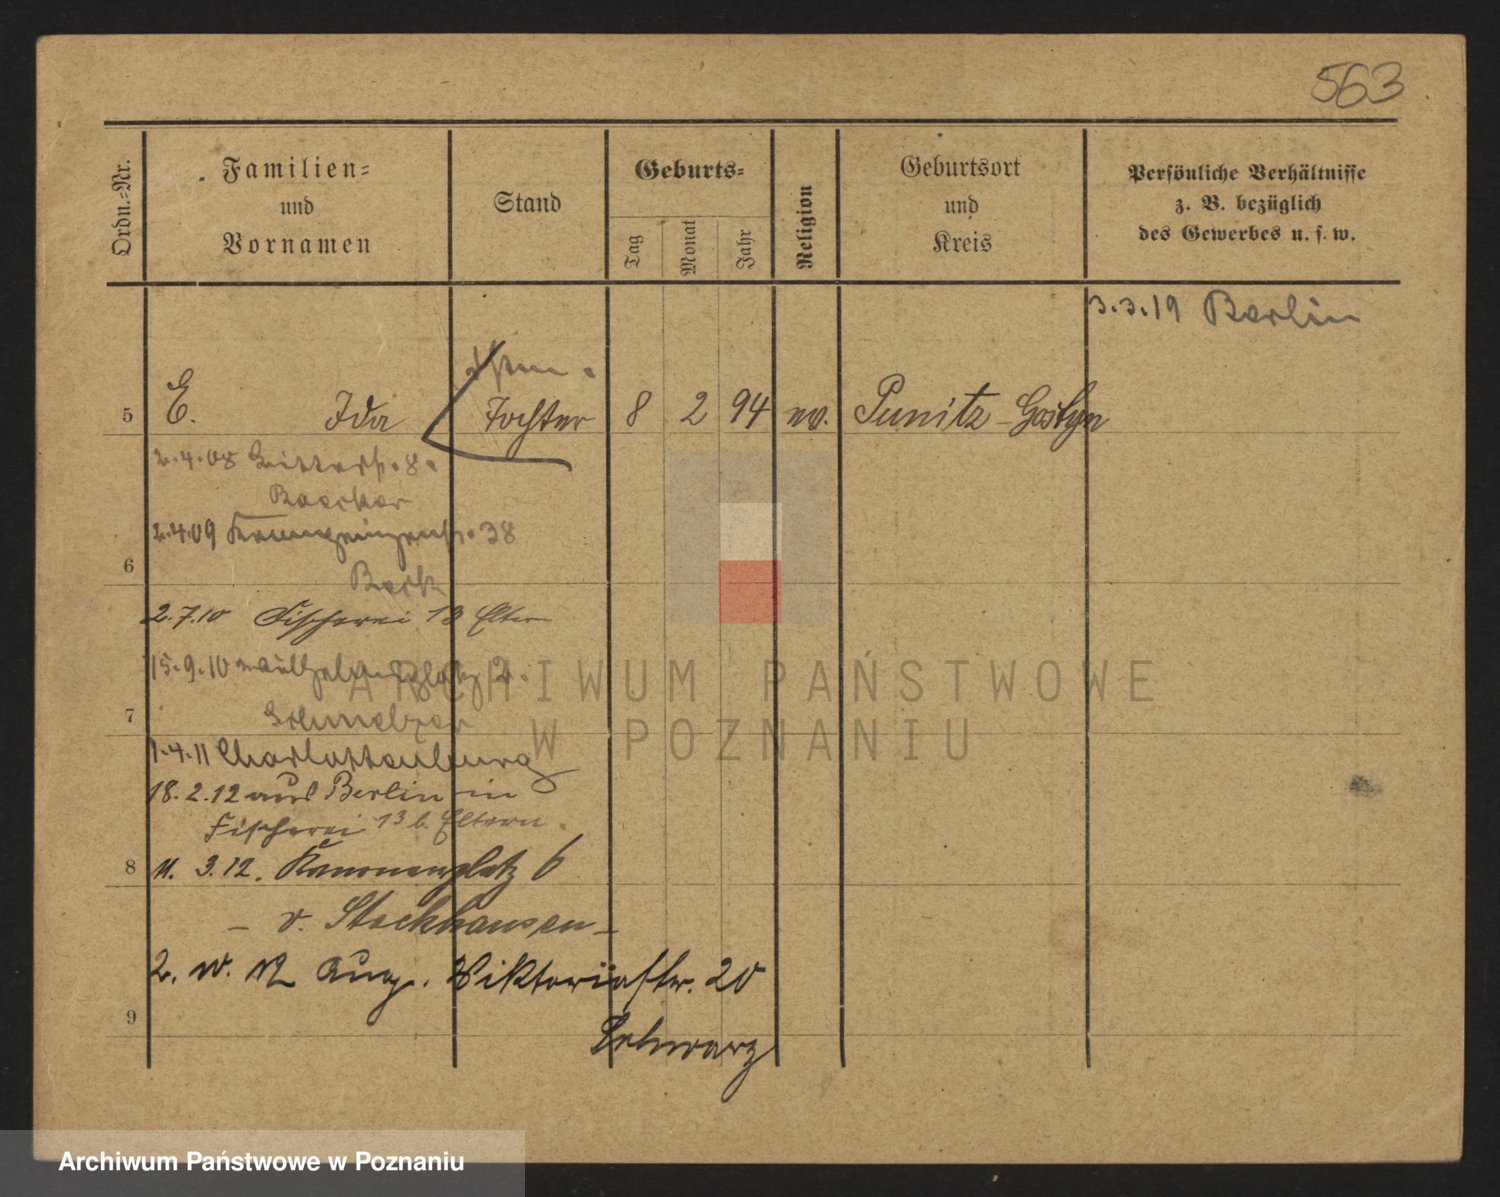 563
Ordn.-Nr.
Familien-
und
Vornamen
Stand
Geburts-
Tag
Monat
Jahr
Religion
Geburtsort
und
Kreis
Persönliche Verhältnisse
z. B. bezüglich
des Gewerbes u. s. w.
3.3.19 Berlin
5 E. Ida Tochter 8 2 94 ev. Punitz - Gostyn
2.4.08 Ritterstr. 8.
2.4.09 38
6
2.7.10 Fischerei 13 Eltern
15.9.10 2.
7
Schmelzer
1.4.11 Charlottenburg
18.2.12 aus Berlin in
Fischerei 13 b. Eltern.
8 11. 3.12. Kanonenplatz 6
- v. Stockhausen -
Aug. Viktoriastr. 20
9
Schwarz
ARCHIWUM PAŃSTWOWE
W POZNANIU
Archiwum Państwowe w Poznaniu